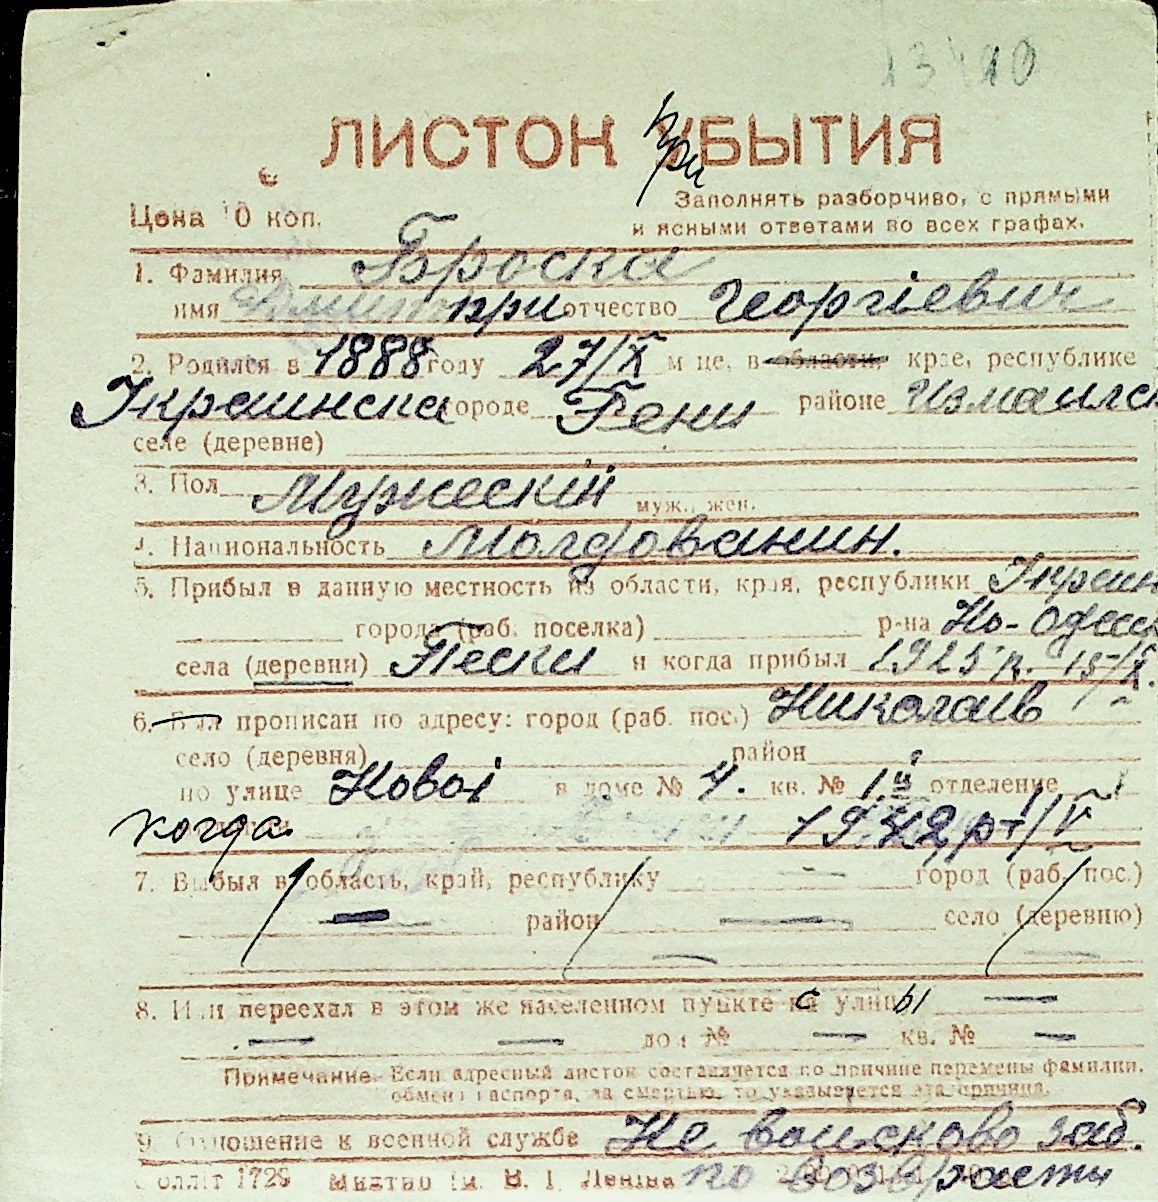 ЛИСТОК при БЫТИЯ
Цена 10 коп.
Заполнять разборчиво, с прямыми
и ясными ответами во всех графах.
1. Фамилия Броска
имя Дмитрий отчество Георгіевич
2. Родился в 1888 году 27/X м-це, в области, крае, республике
Украинска городе Рени районе Измаилск
селе (деревне)
3. Пол Мужескій муж., жен.
4. Национальность Молдованин.
5. Прибыл в данную местность из области, края, республики Украин
города (раб. поселка) р-на Но-Одесск
села (деревни) Пески и когда прибыл 1925 р. 15/X.
6. Был прописан по адресу: город (раб. пос.) Николаів
село (деревня) район
по улице Новоі в доме № 4. кв. № 1. III отделение
когда 1942 р 1/V
7. Выбыл в область, край, республику город (раб. пос.)
район село (деревню)
8. Или переехал в этом же населенном пункте с улицы
дом № кв. №
Примечание. Если адресный листок составляется по причине перемены фамилии,
обмена паспорта, за смертью, то указывается эта причина.
9. Отношение к военной службе Не воисково заб.
Боллит 1729 Миктип им. В. І. Леніна по возврасти